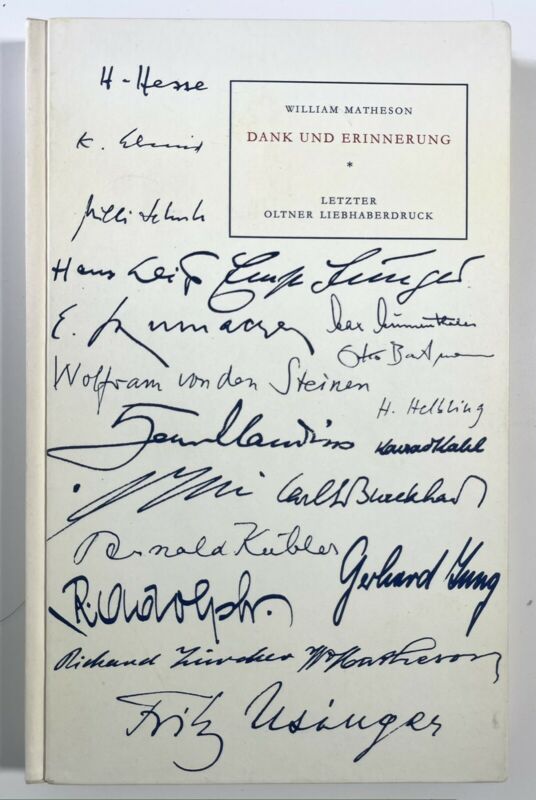 H. Hesse
WILLIAM MATHESON
DANK UND ERINNERUNG
*
LETZTER
OLTNER LIEBHABERDRUCK
K.
Hans Ernst Jünger
E.
Otto
Wolfram von den Steinen
H. Helbling
Konrad Kahl
Carl J Burckhardt
Arnold Kübler
Gerhard Jung
R. Adolph.
Richard Zürcher W Matheson
Fritz Usinger